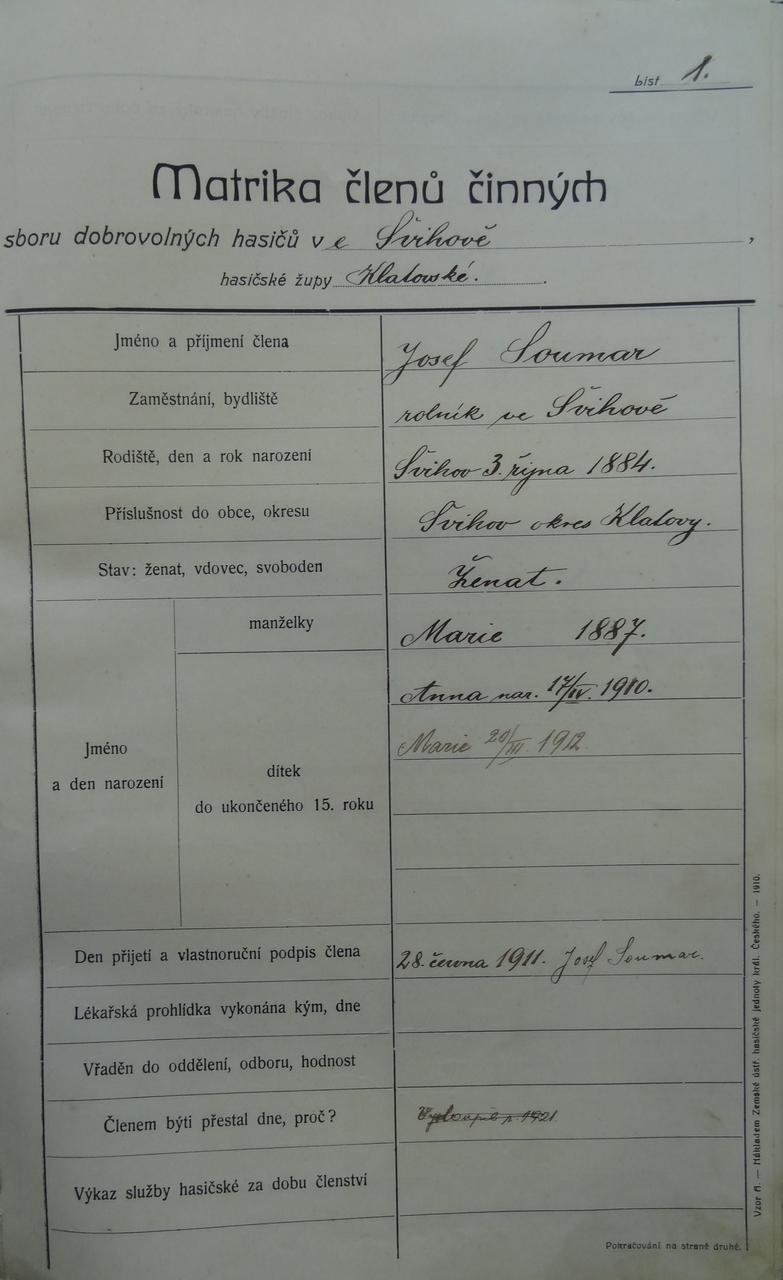 List 1.
Matrika členů činných
sboru dobrovolných hasičů v e Švihově,
hasičské župy Klatovské.
Jméno a příjmení člena Josef Soumar
Zaměstnání, bydliště rolník ve Švihově
Rodiště, den a rok narození Švihov 3. října 1884.
Příslušnost do obce, okresu Švihov okres Klatovy.
Stav: ženat, vdovec, svoboden Ženat.
manželky Marie 1887.
Anna nar. 17/IV. 1910.
Jméno
a den narození
Marie 20/III 1912.
dítek
do ukončeného 15. roku
Den přijetí a vlastnoruční podpis člena 28. června 1911. Josef Soumar.
Lékařská prohlídka vykonána kým, dne
Vřaděn do oddělení, odboru, hodnost
Členem býti přestal dne, proč? 1921
Výkaz služby hasičské za dobu členství
Pokračování na straně druhé.
Vzor A. — Nákladem Zemské ústř. hasičské jednoty král. Českého. — 1910.